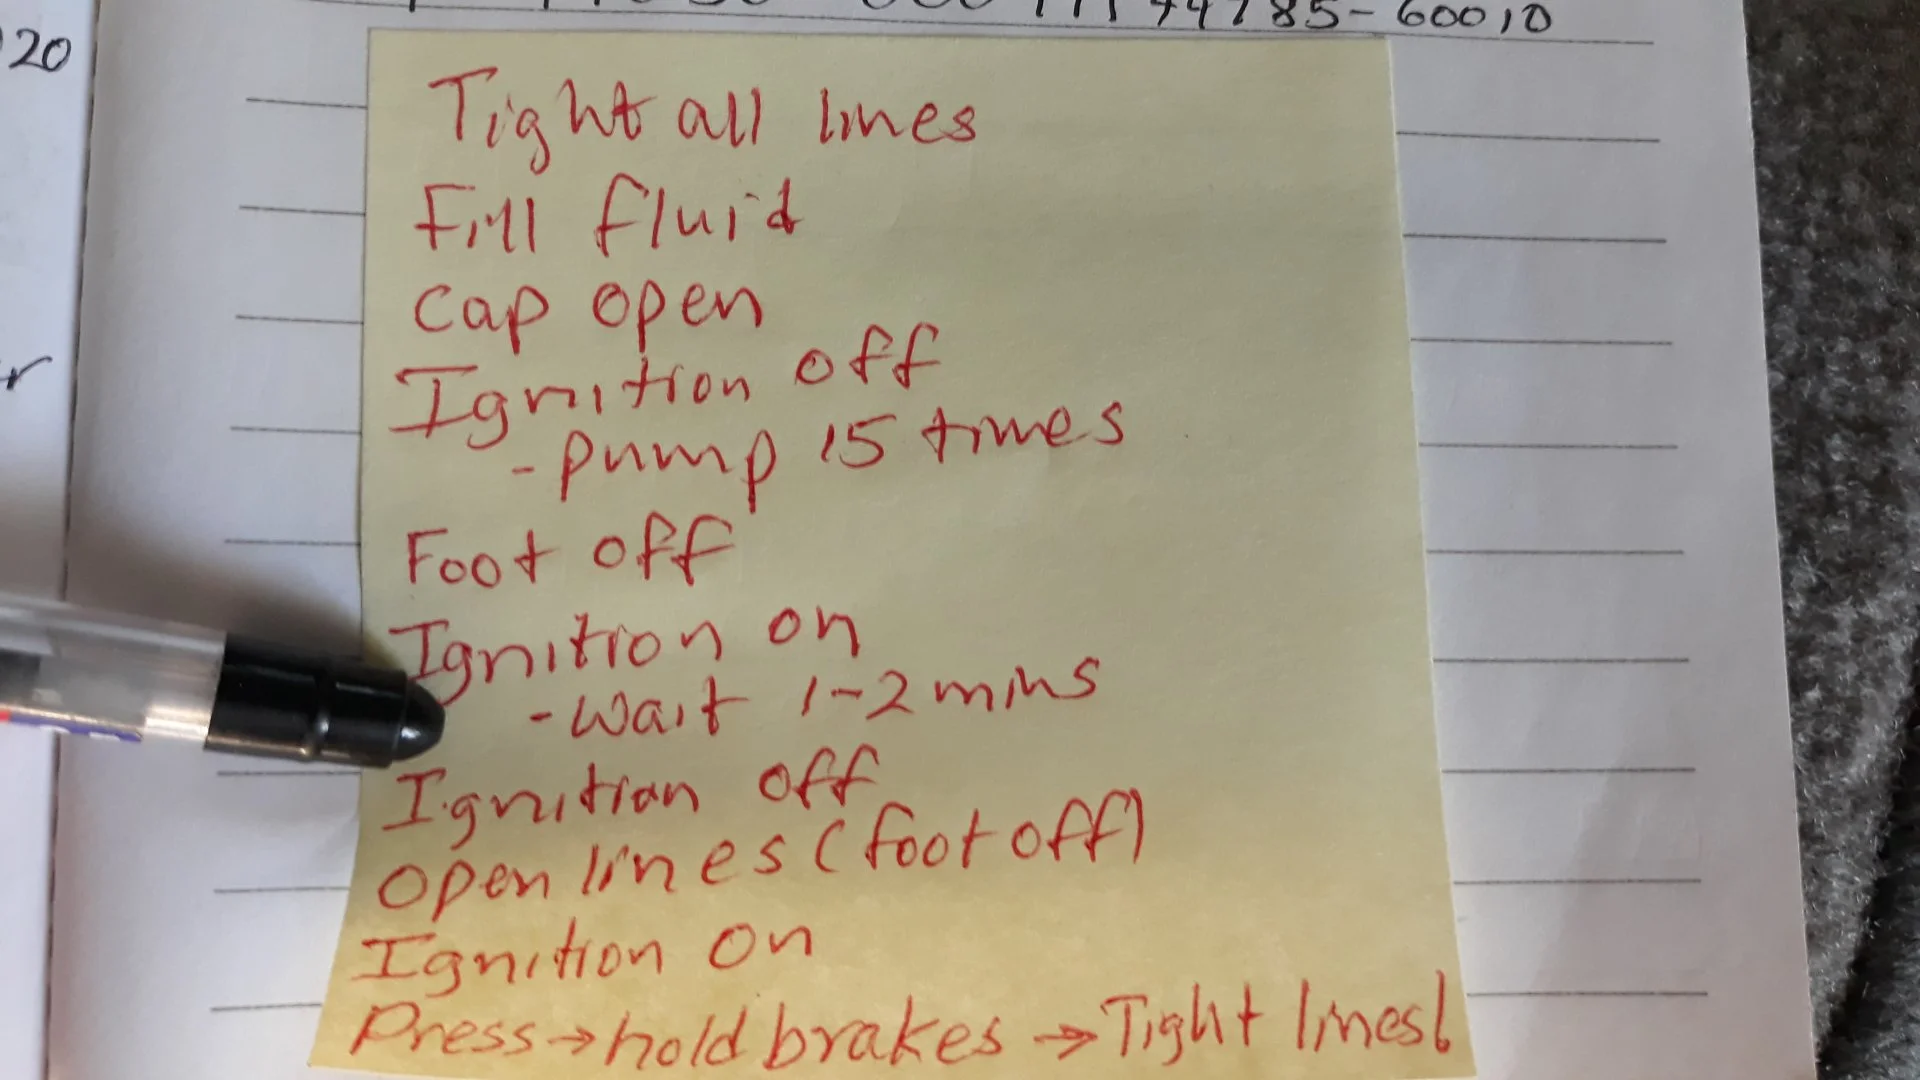 20
785-60010
Tight all lines
Fill fluid
Cap open
Ignition off
-pump 15 times
Foot off
Ignition on
-Wait 1-2 mins
Ignition off
Open lines (foot off)
Ignition on
Press→hold brakes→Tight lines!